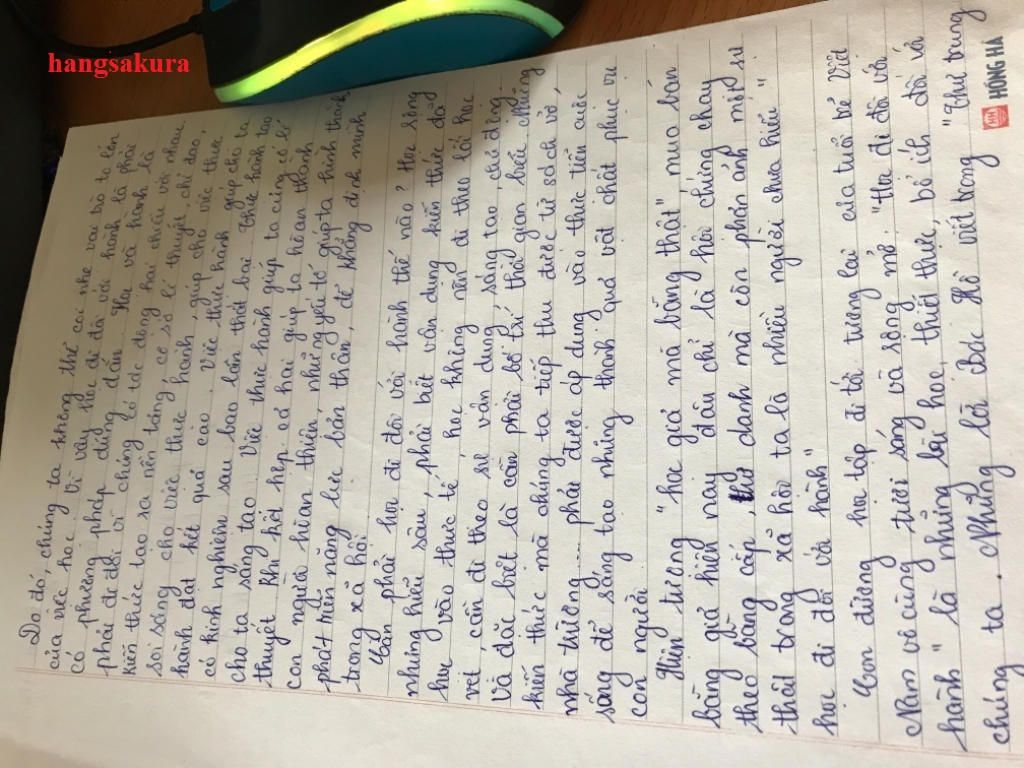 hangsakura
Do đó, chúng ta không thể coi nhẹ vai trò to lớn
của việc học. Vì vậy theo đi đôi với hành là phải
có phương pháp đúng đắn. Học và hành là
phải đi đôi vì chúng có tác động hai chiều với nhau.
kiến thức tạo ra nền tảng, cơ sở lí thuyết, chỉ đạo,
soi sáng cho việc thực hành, giúp cho việc thực
hành đạt kết quả cao. Việc thực hành giúp cho ta
có kinh nghiệm sau bao lần thất bại. Thực hành tạo
cho ta sáng tạo. Việc thực hành giúp ta củng cố lí
thuyết. Khi kết hợp cả hai giúp ta hoàn thành
con người hoàn thiện, những yếu tố giúp ta hình thành,
phát triển năng lực bản thân, để khẳng định mình
trong xã hội.
Cần phải học đi đôi với hành thế nào? Học rộng
nhưng hiểu sâu, phải biết vận dụng kiến thức đã
học vào thực tế, học không nên đi theo lối học
vẹt, cần đi theo sự vận dụng, sáng tạo, chủ động.
Và đặc biệt là cần phải bố trí thời gian biểu. Những
kiến thức mà chúng ta tiếp thu được từ sách vở,
nhà trường... phải được áp dụng vào thực tiễn cuộc
sống để sáng tạo những thành quả vật chất phục vụ
con người.
Hiện tượng "học giả mà bằng thật", mua bán
bằng giả hiện nay đâu chỉ là hội chứng chạy
theo bằng cấp, danh mà còn phản ánh một sự
thật trong xã hội ta là nhiều người chưa hiểu "
học đi đôi và hành"
Con đường học tập đi tới tương lai của tuổi trẻ Việt
Nam vô cùng tươi sáng và rộng mở. "Học đi đôi với
hành" là những bài học, thiết thực, bổ ích đối với
chúng ta. Những lời Bác Hồ viết trong "Thư trung
HỒNG HÀ